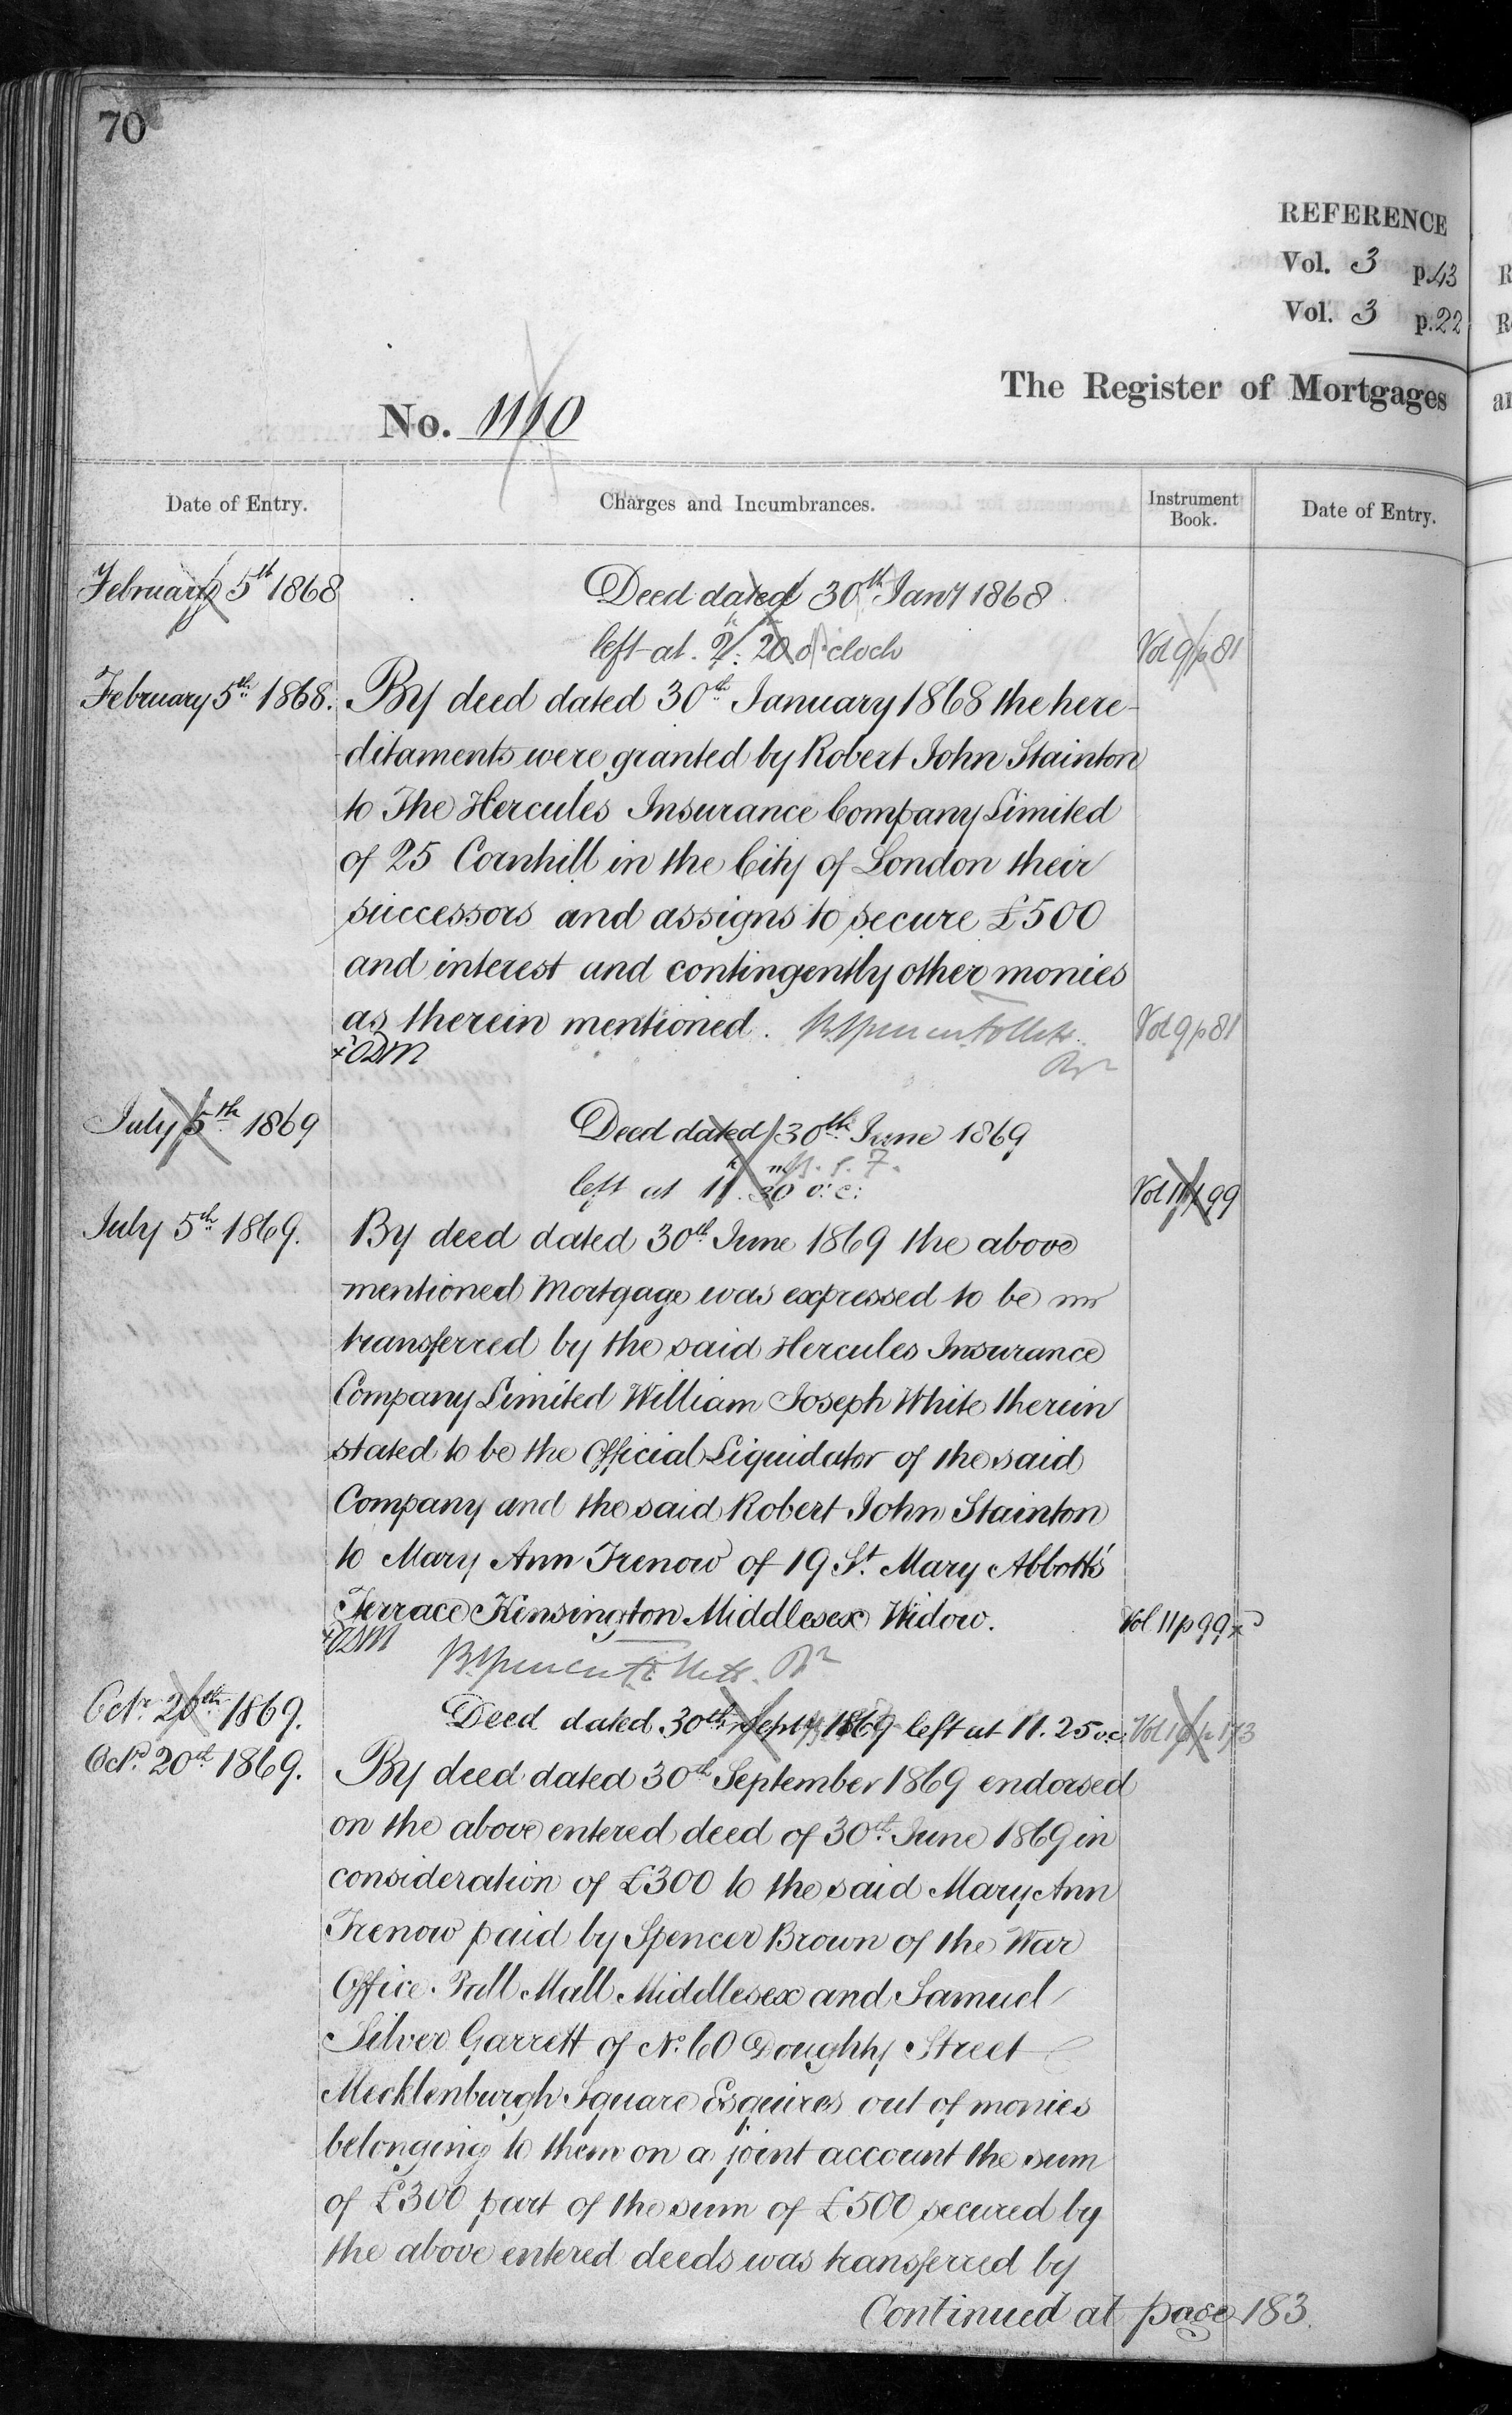 70
REFERENCE
Vol. 3 p.43
Vol. 3 p.22
The Register of Mortgages
No. 1110
Date of Entry. Charges and Incumbrances. Instrument Book. Date of Entry.
February 5th 1868 Deed dated 30th Jany 1868
left at 2h. 20m o'clock Vol 9 p 81
February 5th 1868. By deed dated 30th January 1868 the here-
-ditaments were granted by Robert John Stainton
to The Hercules Insurance Company Limited
of 25 Cornhill in the City of London their
successors and assigns to secure £500
and interest and contingently other monies
as therein mentioned. Vol 9 p 81
July 5th 1869 Deed dated 30th June 1869
left at 11h. 30m o.c: Vol 11 p 99
July 5th 1869. By deed dated 30th June 1869 the above
mentioned Mortgage was expressed to be
transferred by the said Hercules Insurance
Company Limited William Joseph White therein
stated to be the Official Liquidator of the said
Company and the said Robert John Stainton
to Mary Ann Trenow of 19 St. Mary Abbotts'
Terrace Kensington Middlesex Widow. Vol 11 p 99
Octr. 20th 1869. Deed dated 30th Septr 1869 left at 11.25 o.c.
Octr. 20th 1869. By deed dated 30th September 1869 endorsed
on the above entered deed of 30th June 1869 in
consideration of £300 to the said Mary Ann
Trenow paid by Spencer Brown of the War
Office Pall Mall Middlesex and Samuel
Silver Garrett of No. 60 Doughty Street
Mecklenburgh Square Esquires out of monies
belonging to them on a joint account the sum
of £300 part of the sum of £500 secured by
the above entered deeds was transferred by
Continued at page 183.